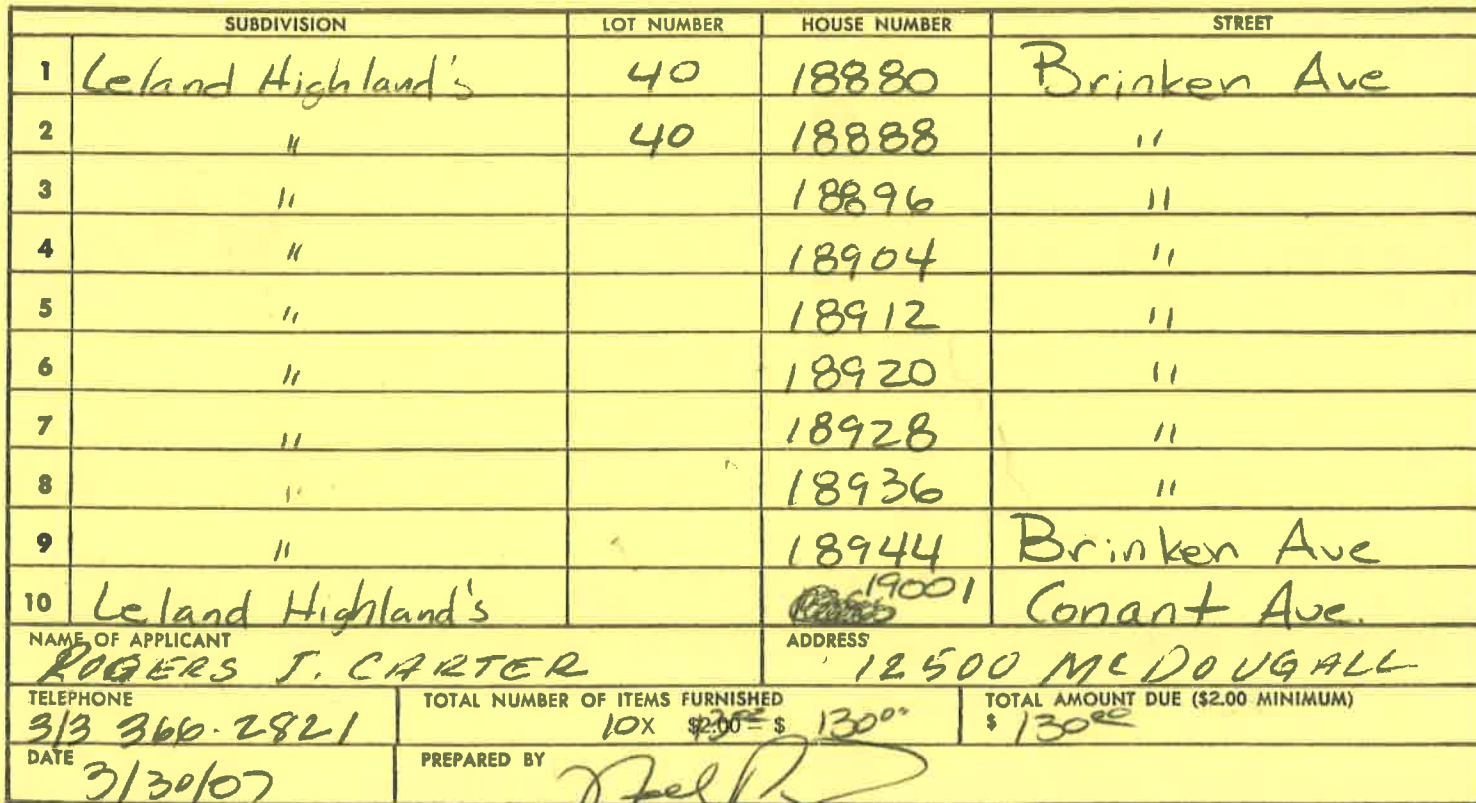 SUBDIVISION LOT NUMBER HOUSE NUMBER STREET
1 Leland Highland's 40 18880 Brinken Ave
2 " 40 18888 "
3 " 18896 "
4 " 18904 "
5 " 18912 "
6 " 18920 "
7 " 18928 "
8 " 18936 "
9 " 18944 Brinken Ave
10 Leland Highland's 19001 Conant Ave.
NAME OF APPLICANT ADDRESS
ROGERS J. CARTER 12500 MCDOUGALL
TELEPHONE TOTAL NUMBER OF ITEMS FURNISHED TOTAL AMOUNT DUE ($2.00 MINIMUM)
313 366-2821 10X $2.00 = $ 130.00 $ 130.00
DATE PREPARED BY
3/30/07